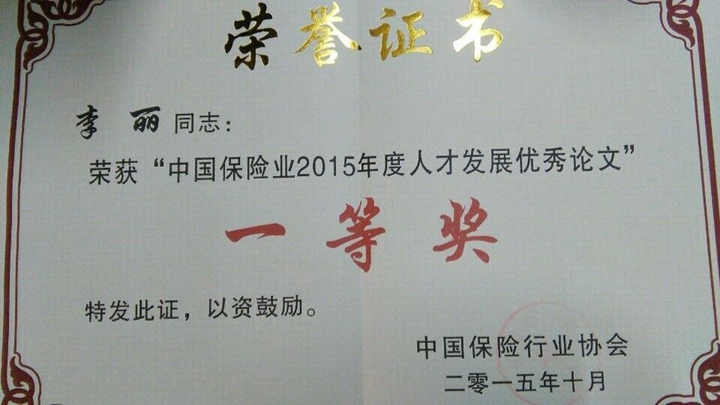 荣誉证书
李丽同志：
荣获“中国保险业2015年度人才发展优秀论文”
一等奖
特发此证，以资鼓励。
中国保险行业协会
二零一五年十月